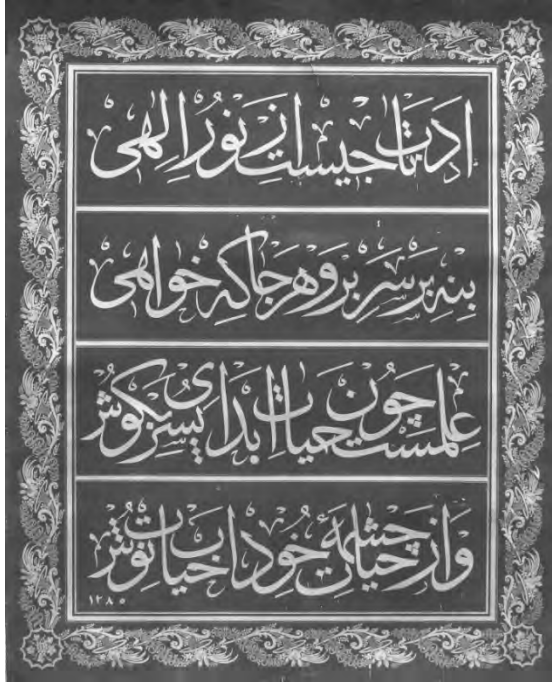 ادب تاجیست از نور الهی
بنه بر سر برو هر جا که خواهی
علمست چون حیات ابد ای پسر بکوش
واز چشمهٔ حیات خود آب حیات نوش
۱۲۸۵